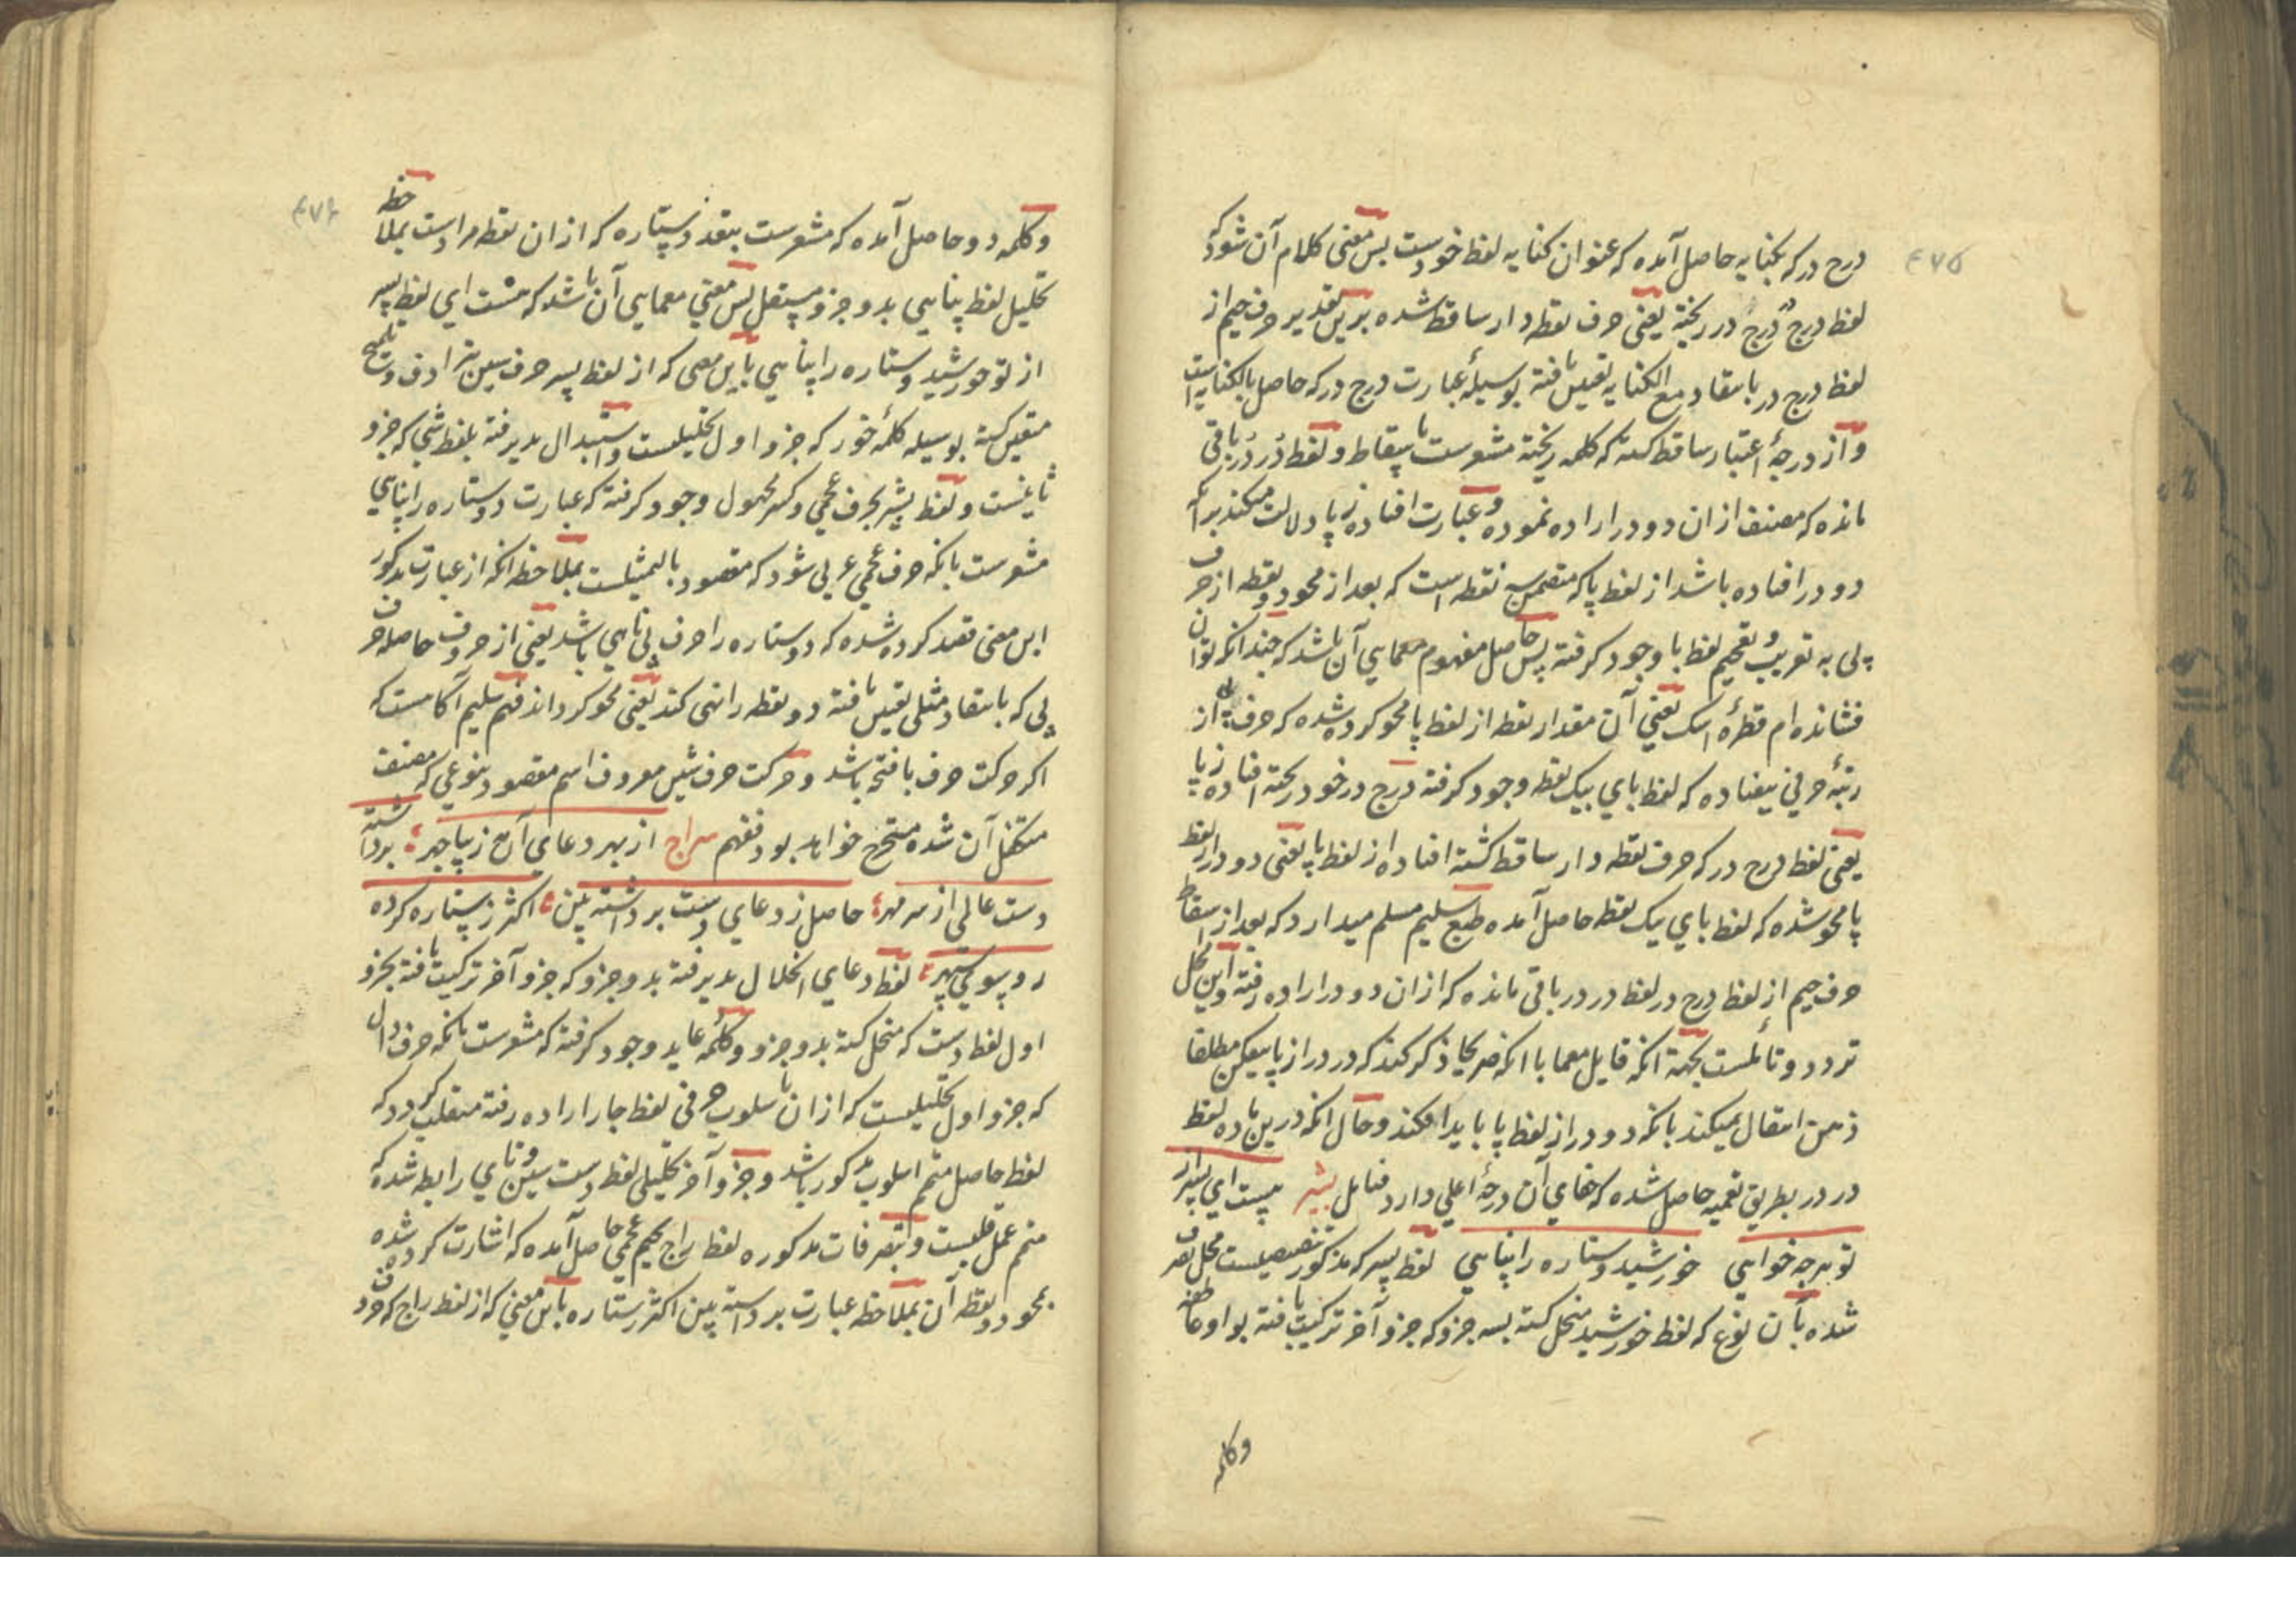 ۴۷۵
درج در که بکنایه حاصل آمده که عنوان کنایه لفظ خودست پس معنی کلام آن شود که
لفظ درج درج در ریخته یعنی حرف نقطه دار ساقط شده برین تقدیر حرف جیم از
لفظ درج در بانتقاد مع الکنایه تعیین یافته بوسیلهٔ عبارت درج در که حاصل بالکنایه است
و از درجهٔ اعتبار ساقط کشته که کلمه ریخته مشعرست باسقاط و لفظ دُر دُر باقی
مانده که مصنف ازان دو در اراده نموده و عبارت افتاده ز پا دلالت میکند بر آنکه
دو در افتاده باشد از لفظ پا که متضمن سه نقطه است که بعد از محو دو نقطه از حرف
پی به تعریب و تفخیم لفظ با وجود کرفته پس حاصل مفهوم معمایی آن باشد که چندانکه توان
فشانده ام قطرهٔ اشک یعنی آن مقدار نقطه از لفظ پا محو کرده شده که حرف پی از
رتبهٔ حرفی نیفتاده که لفظ بای بیک نقطه وجود کرفته درج در خود ریخته افتاده ز پا
یعنی لفظ درج در که حرف نقطه دار ساقط کشته افتاده از لفظ پا یعنی دو در از لفظ
پا محو شده که لفظ بای یک نقطه حاصل آمده طبع سلیم مسلم میدارد که بعد از اسقاط
حرف جیم از لفظ درج در لفظ در در باقی مانده که ازان دو در اراده رفته و این محل
تردد و تأملست بجهة انکه قایل معما با انکه صریحا ذکر کند که در در از پا بیفکن مطلقا
ذهن انتقال نمیکند بانکه دو در از لفظ پا باید افکند و حال انکه درین ماده لفظ
در در بطریق تعمیه حاصل شده که خفای آن درجهٔ اعلی دارد فتامل بشیر نیست ای پسر از
تو هرچه خواهی خورشید و ستاره را پناهی لفظ پسر که مذکور تنصیصیست محل تصرف
شده بآن نوع که لفظ خورشید منحل کشته بسه جزو که جزو آخر ترکیب یافته بواو عاطفه
وکلمه
۴۷۶
وکلمه دو حاصل آمده که مشعرست بتقد دو ستاره که ازان نقطه مرادست بملاحظه
تحلیل لفظ پناهی بدو جزو مستقل پس معنی معمایی آن باشد که هست ای لفظ پسر
از تو خورشید و ستاره را پناهی باین معنی که از لفظ پسر حرف سین بترادف و تلمیح
متعین کشته بوسیله کلمهٔ خور که جزو اول تحلیلیست و استبدال پذیرفته بلفظ شی که جزو
ثانیست و لفظ پشیر بحرف عجمی و کسر مجهول وجود کرفته که عبارت دو ستاره را پناهی
مشعرست بانکه حرف عجمی عربی شود که مقصود بالتمثیلست بملاحظه انکه از عبارت مذکور
این معنی قصد کرده شده که دو ستاره را حرف پی ناهی باشد یعنی از حروف حاصله حرف
پی که بانتقاد مثلی تعیین یافته دو نقطه را نهی کند یعنی محو کرداند فهم سلیم آکاهست که
اکر حرکت حرف با فتحه باشد و حرکت حرف شین معروف اسم مقصود بنوعی که مصنف
متکفل آن شده متحتح خواهد بود فتفهم سراج از بهر دعای آن زیبا چهر برداشته
دست عالی از سر مهر حاصل ز دعای دست برداشته بین اکثر ز ستاره کرده
رو سوی سپهر لفظ دعای انحلال پذیرفته بدو جزو که جزو آخر ترکیب یافته بجزو
اول لفظ دست که منحل کشته بدو جزو و کلمهٔ عاید وجود کرفته که مشعرست بانکه حرف دال
که جزو اول تحلیلیست که ازان باسلوب حرفی لفظ جار اراده رفته منقلب کردد که
لفظ حاصل متمم اسلوب مذکور باشد و جزو آخر تحلیلی لفظ دست سین و تای رابطه شده که
متمم عمل قلبست و بتصرفات مذکوره لفظ راج بجیم عجمی حاصل آمده که اشارت کرده شده
بمحو دو نقطه آن بملاحظه عبارت برداشته بین اکثر ستاره باین معنی که از لفظ راج که حرف